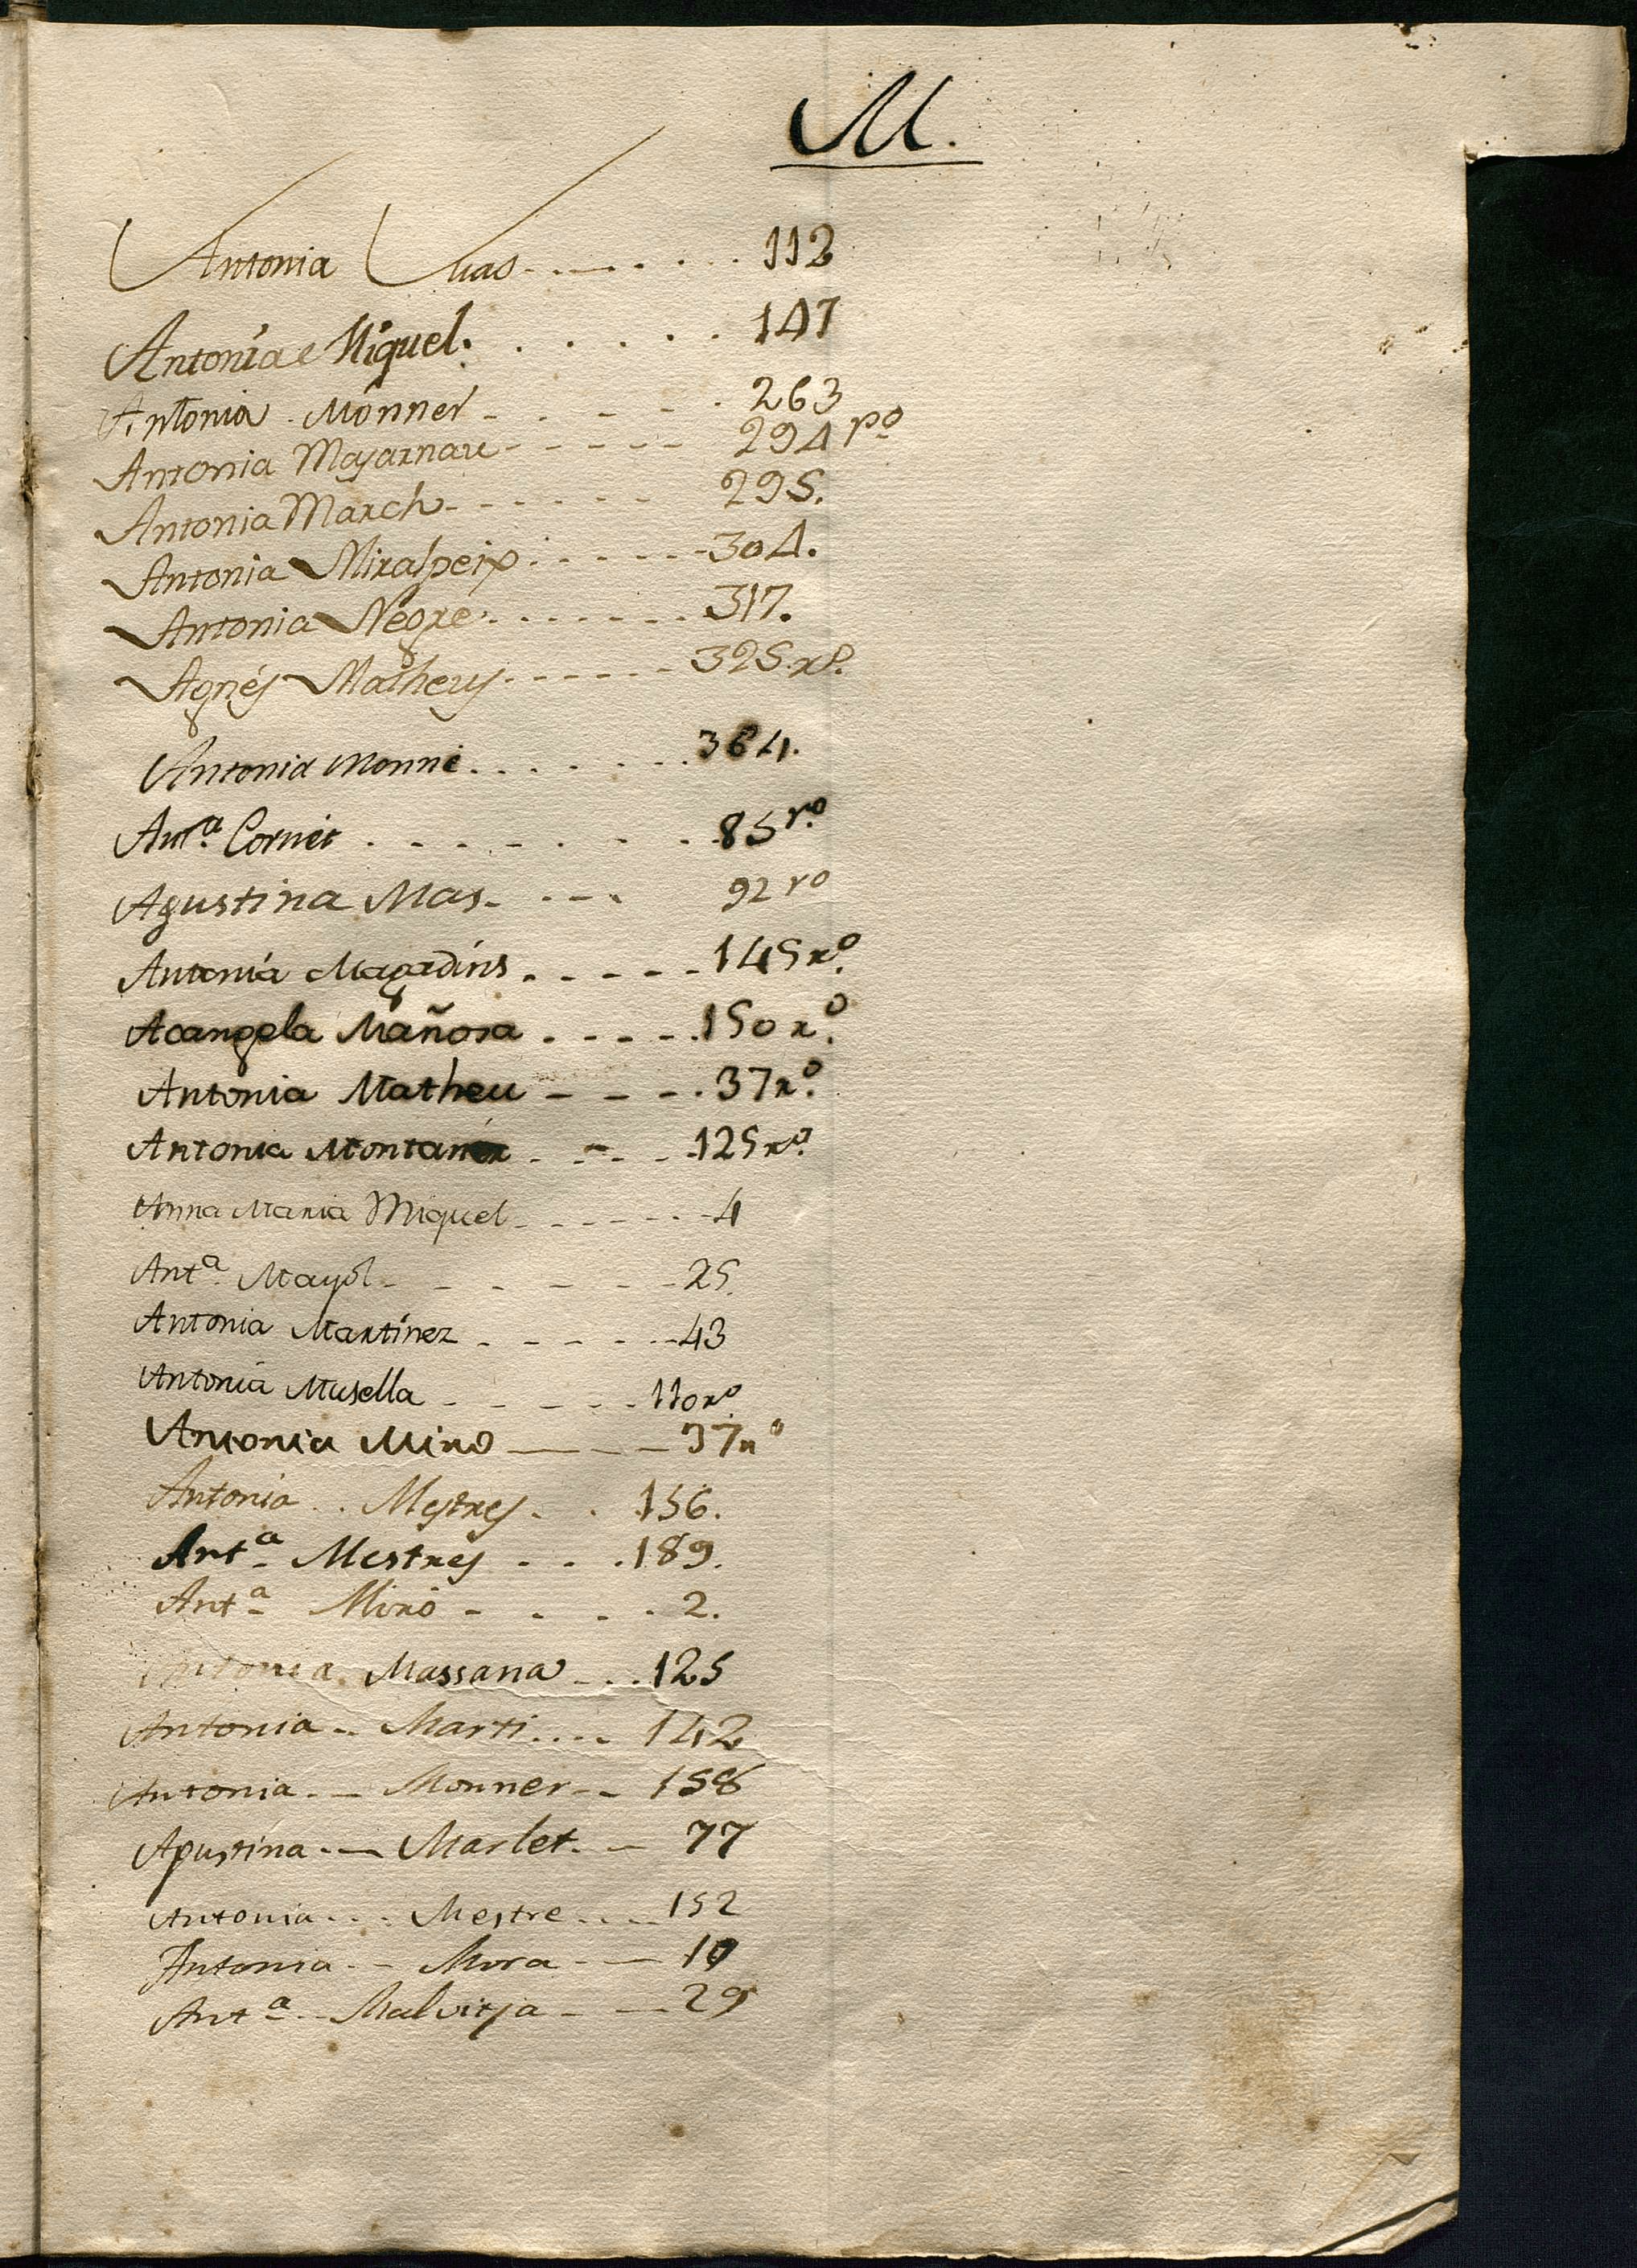 M.
Antonia Vias 112
Antonia Miquel. 147
Antonia Monner 263
Antonia Masarnau 294 ro
Antonia March 295.
Antonia Miralpeix 304.
Antonia Negre 317.
Agnés Matheus 325. ro.
Antonia Monné 364.
Anta. Cornét 85 ro.
Agustina Mas 92 ro
Antonia Magadins 145 ro.
Acangela Mañosa 150 ro.
Antonia Matheu 37 ro.
Antonia Montanér 125 ro.
Anna Maria Miquel 4
Anta. Mayól 25.
Antonia Martínez 43
Antonia Musella 110 ro.
Antonia Miró 37 ro
Antonia Mestres 156.
Anta. Mestres 189.
Anta. Miró 2.
Antonia Massana 125
Antonia Marti 142
Antonia Monner 158
Agustina Marlet 77
Antonia Mestre 152
Antonia Mora
Anta. Malvitja 29